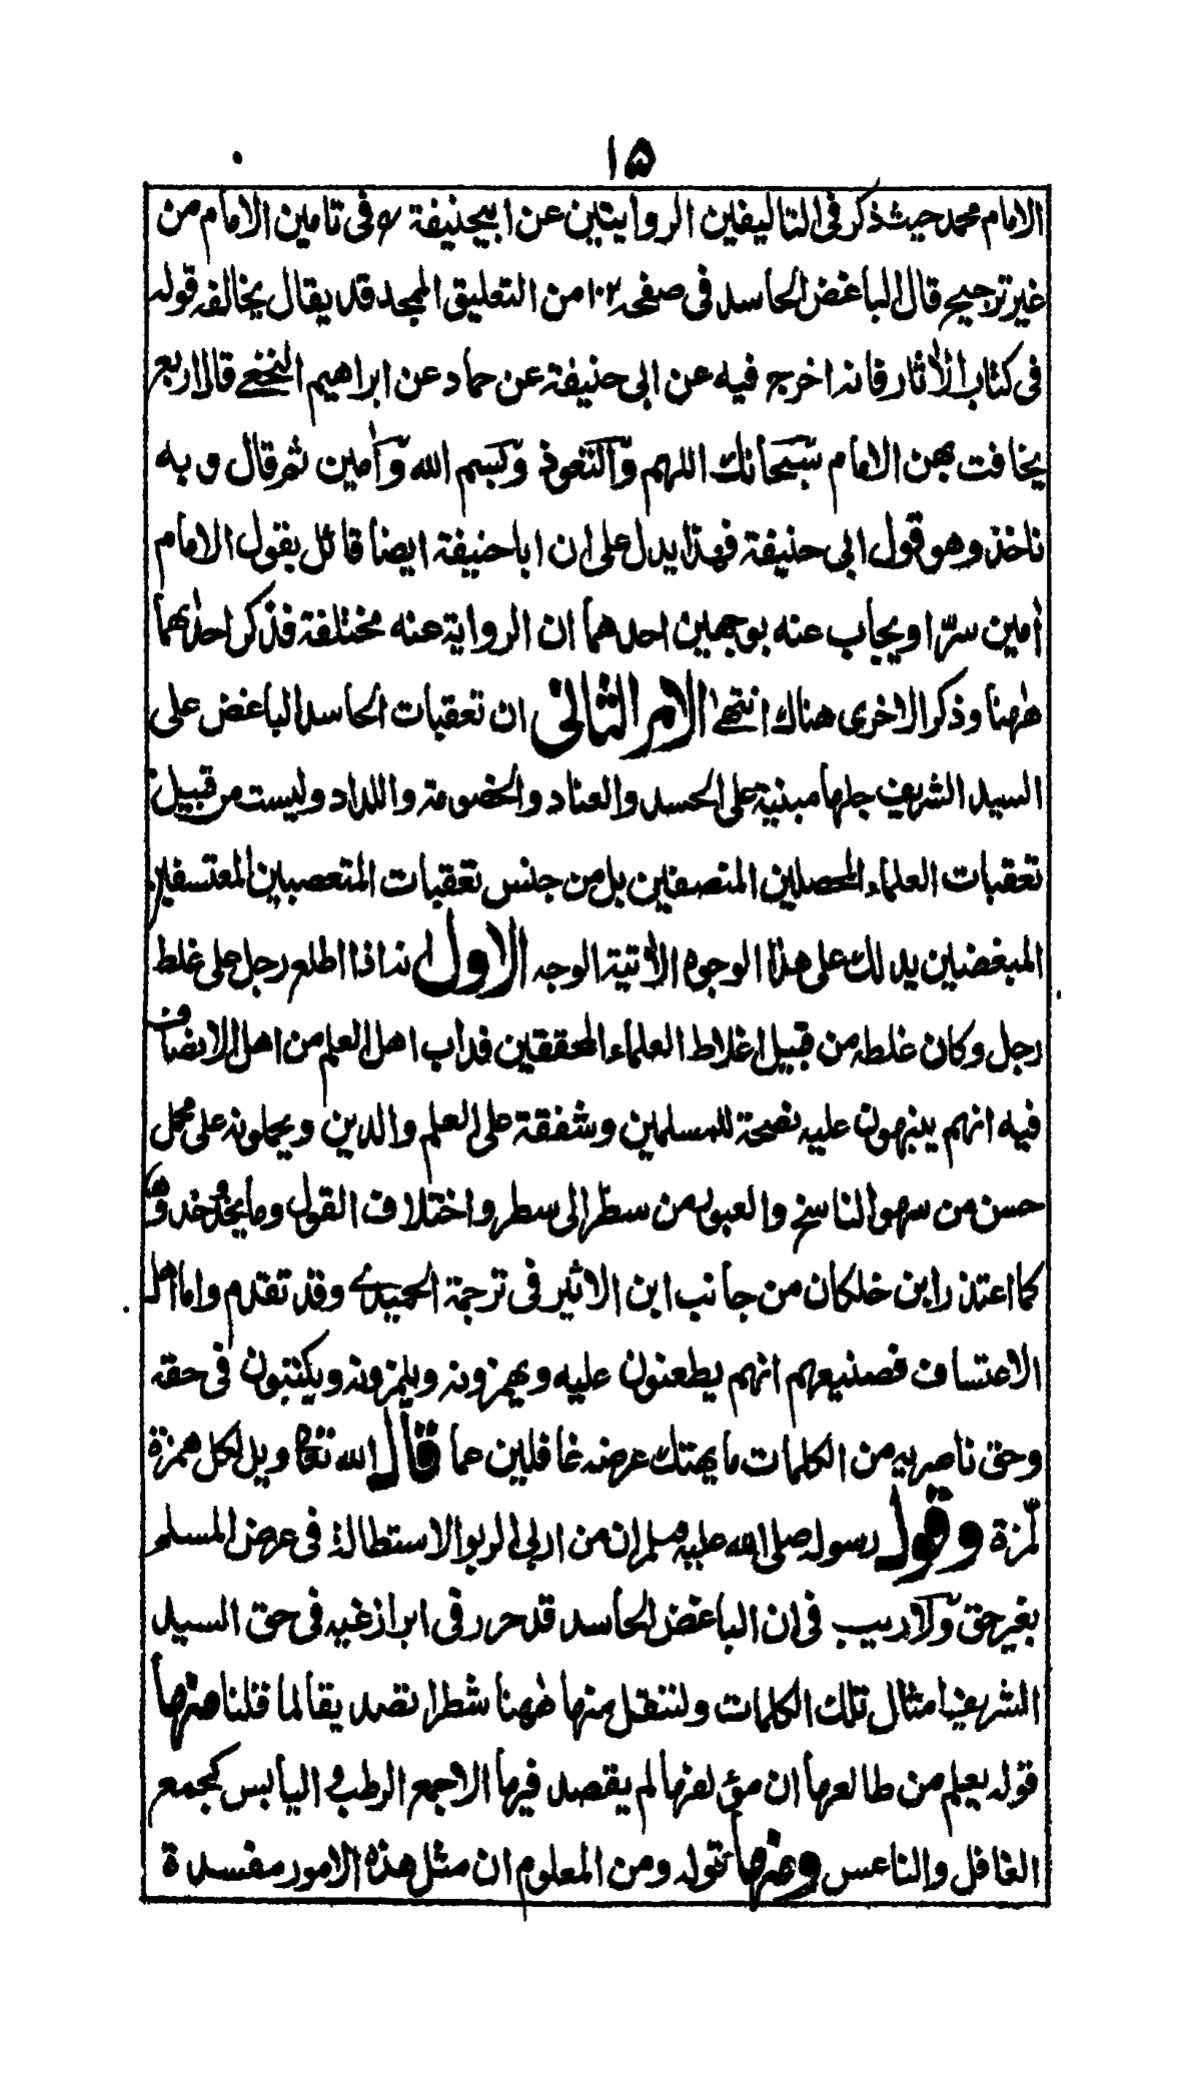 ١٥
الامام محمد حيث ذكر فى التاليفين الروايتين عن ابيحنيفة فى تامين الامام من
غير ترجيح قال الباغض الحاسد فى صفحہ ١٠٢ من التعليق الممجد قد يقال يخالفه قوله
فى كتاب الآثار فانه اخرج فيه عن ابى حنيفة عن حماد عن ابراهيم النخعے قال اربع
يخافت بهن الامام سبحانك اللهم والتعوذ وبسم الله وآمين ثم قال وبه
ناخذ وهو قول ابى حنيفة فهذا يدل على ان ابا حنيفة ايضا قائل بقول الامام
اٰمين سرّا ويجاب عنه بوجهين احدهما ان الرواية عنه مختلفة فذكر احدٰيهما
هٰهنا وذكر الاخرى هناك انتهےٰ الامر الثانى ان تعقبات الحاسد الباغض على
السيد الشريف جلها مبنية على الحسد والعناد والخصومة واللداد وليست من قبيل
تعقبات العلماء المحصلين المنصفين بل من جنس تعقبات المتعصبين المعتسفين
المبغضين يدلك على هذا الوجوه الآتية الوجه الاول انه اذا اطلع رجل على غلط
رجل وكان غلطه من قبيل اغلاط العلماء المحققين فداب اهل العلم من اهل الانصاف
فيه انهم ينبهون عليه نصيحة للمسلمين وشفقة على العلم والدين ويحملونه على محمل
حسن من سهو الناسخ والعبور من سطر الى سطر واختلاف القول وما يحذو حذوه
كما اعتذر ابن خلكان من جانب ابن الاثير فى ترجمة الحميدے وقد تقدم واما اهل
الاعتساف فصنيعهم انهم يطعنون عليه ويهمزونه ويلمزونه ويكتبون فى حقه
وحق ناصريه من الكلمات ما يهتك عرضه غافلين عما قال الله تعالى ويل لكل همزة
لّمزة وقول رسوله صلى الله عليه وسلم ان من اربى الربو الاستطالة فى عرض المسلم
بغير حق ولا ريب فى ان الباغض الحاسد قد حرر فى ابراز غيه فى حق السيد
الشريف امثال تلك الكلمات ولننقل منها هٰهنا شطرا تصديقا لما قلنا منها
قوله يعلم من طالعها ان مؤلفها لم يقصد فيها الا جمع الرطب و اليابس كجمع
الغافل والناعس ومنها قوله ومن المعلوم ان مثل هذه الامور مفسدة